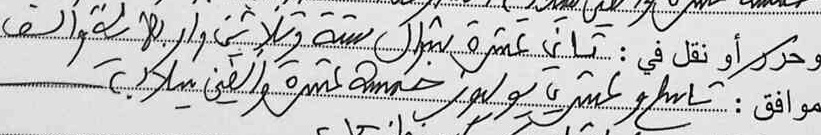 وحرر أو نقل في : ثاني عشرة شوال ستة وثلاثين واربعمائة والف
موافق : تاسع وعشرين يوليوز خمسة عشرة والفين ميلادية